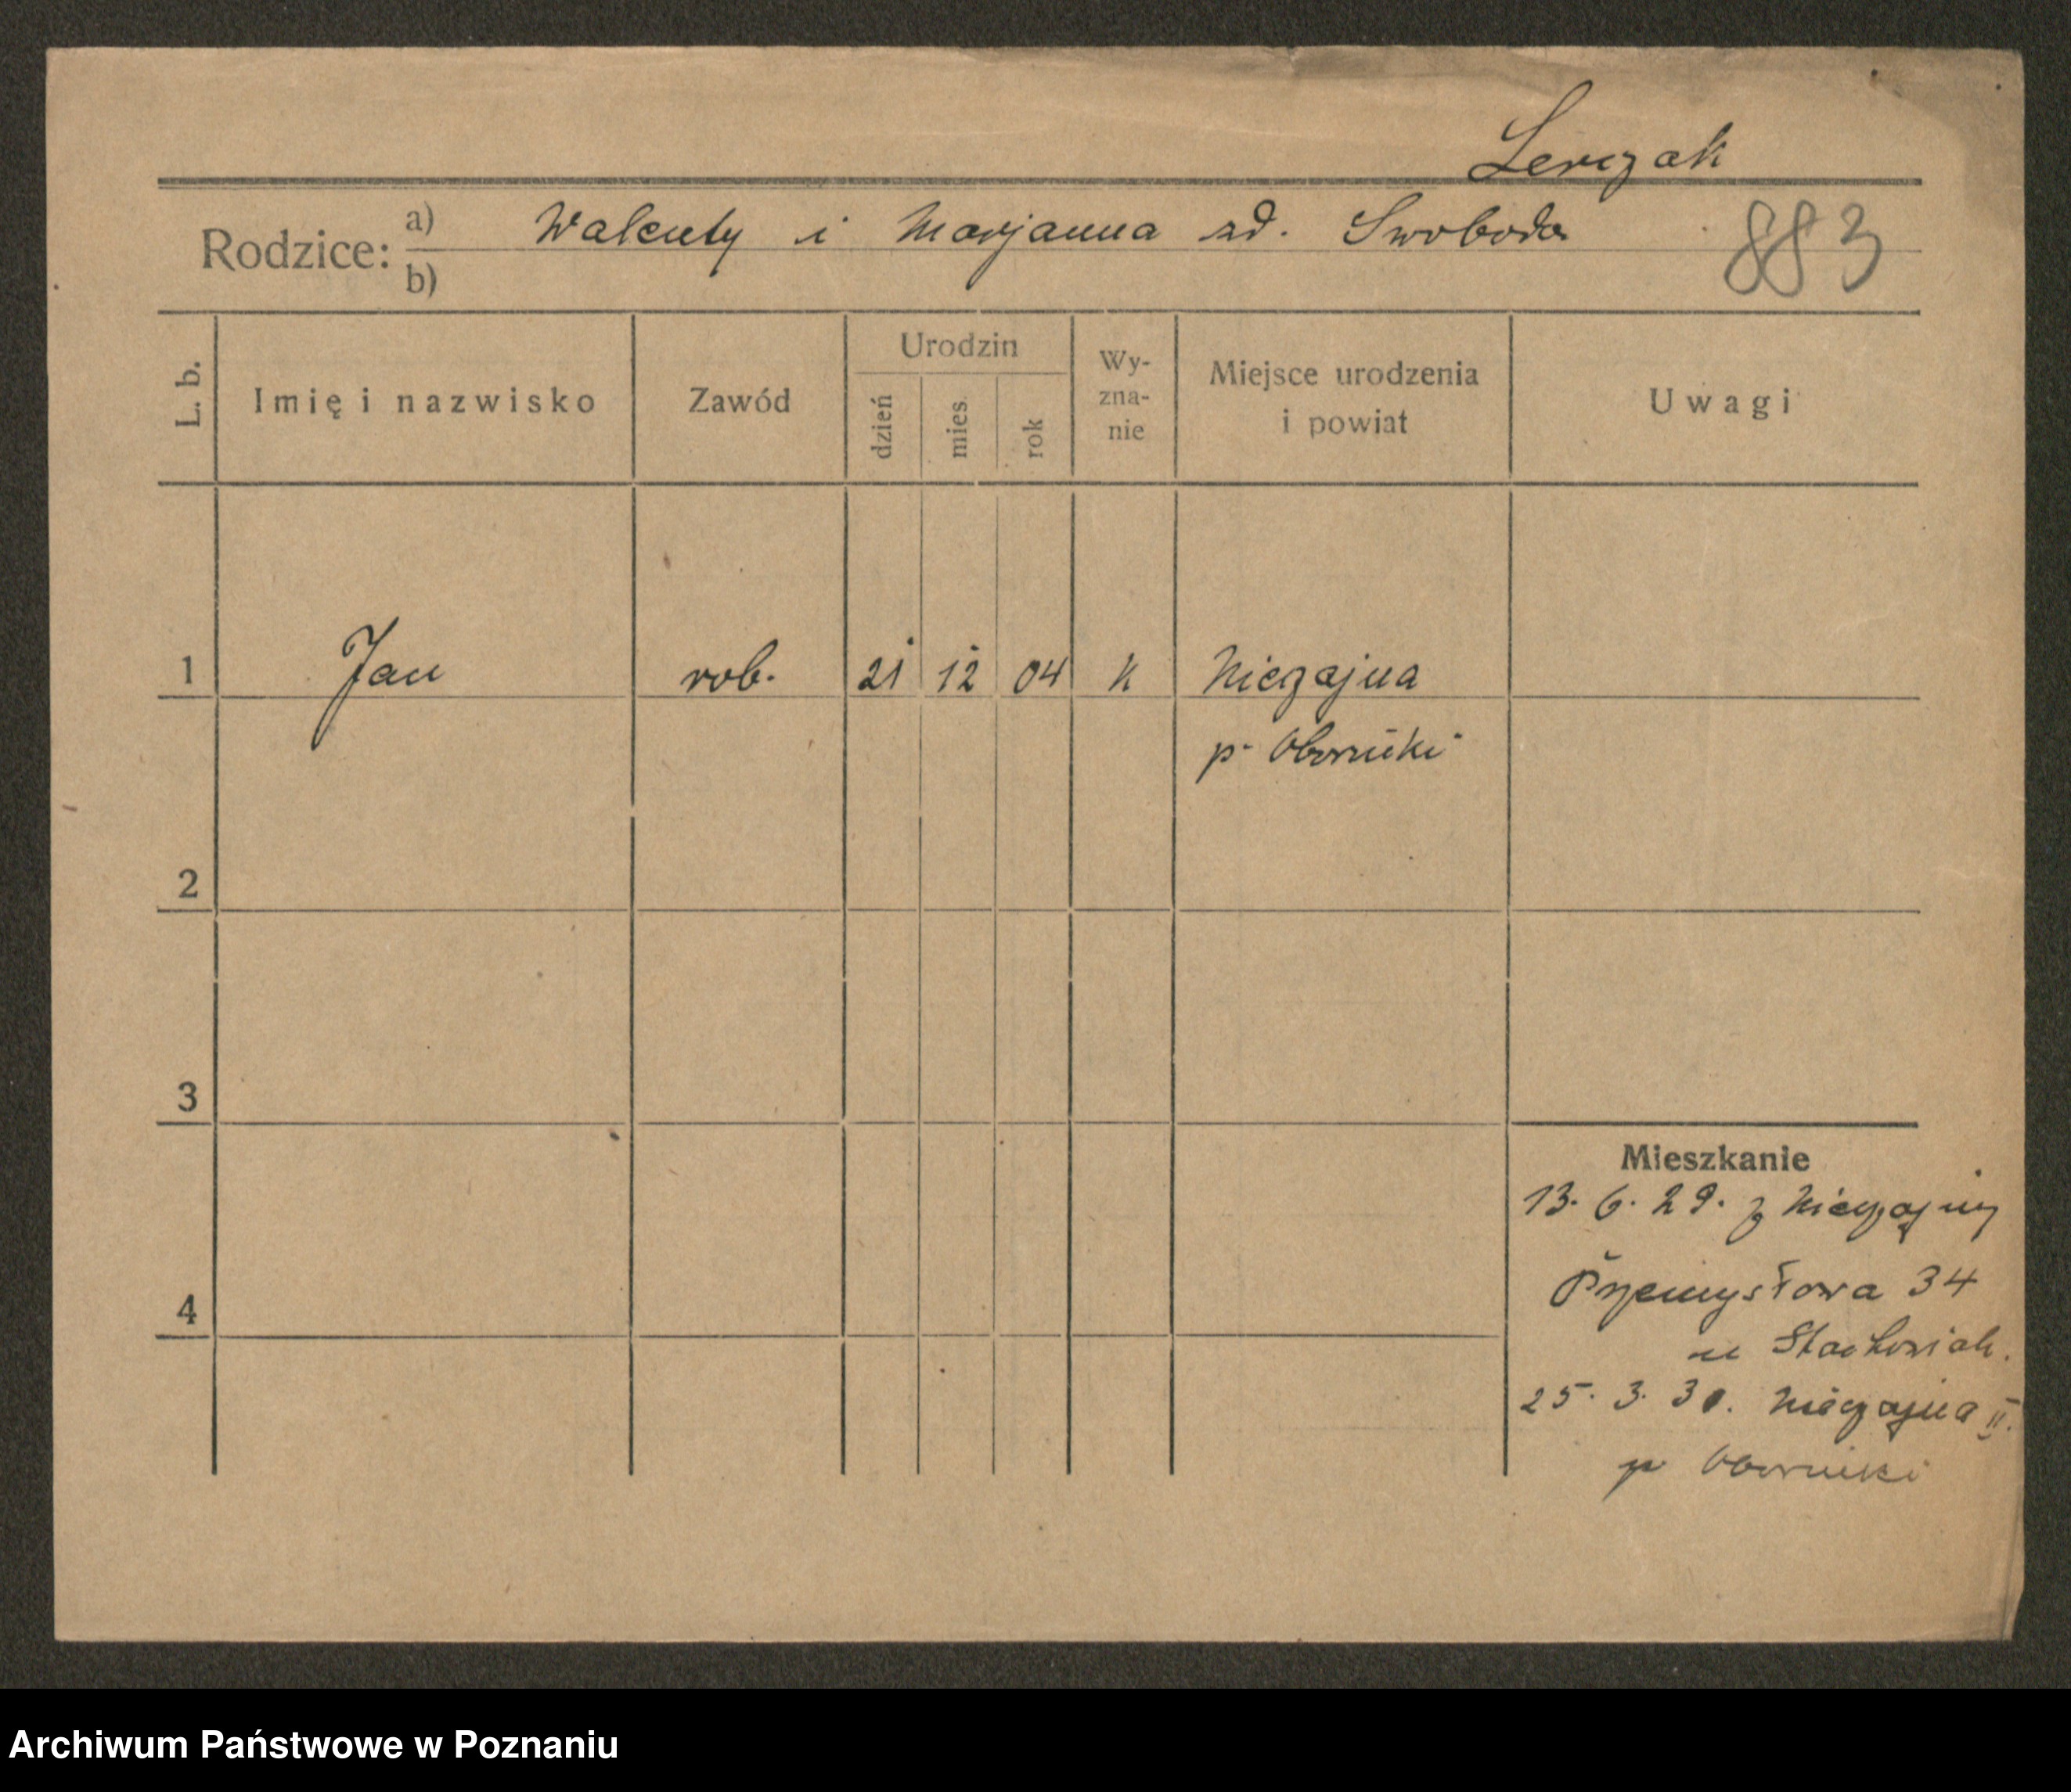 Lerczak
Rodzice: a) Walenty i Marjanna zd. Swoboda 883
b)
L. b. Imię i nazwisko Zawód Urodzin dzień mies. rok Wy-zna-nie Miejsce urodzenia i powiat Uwagi
1 Jan rob. 21 12 04 k Nieczajna
p. Oborniki
2
3
Mieszkanie
13. 6. 29. z Nieczajny
4 Przemysłowa 34
u Stachowiak.
25. 3. 30. Nieczajna II.
p Oborniki
Archiwum Państwowe w Poznaniu